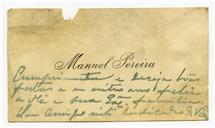 Manuel Pereira
Cumprimenta e deseja boas
festas e um outro anno feliz
a V. Ex. e sua Ex.ma familia
Um amigo